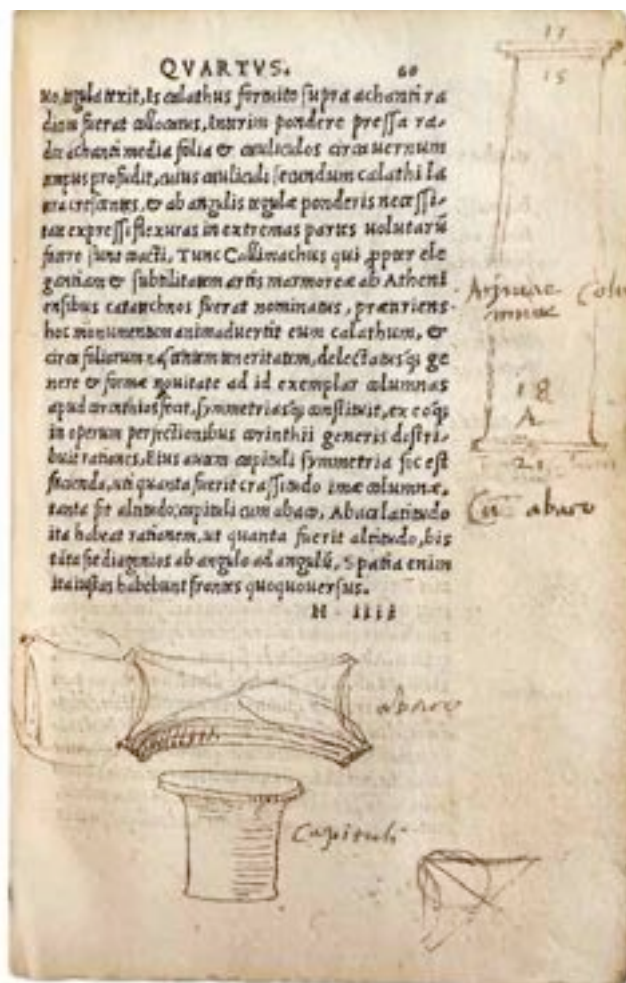 QVARTVS. 60
uo, tegula texit, Is calathus fortuito supra achanti ra
dicem fuerat collocatus, Interim pondere pressa ra-
dix achanti media folia & cauliculos circa uernum
tempus profudit, cuius cauliculi secundum calathi la
tera crescentes, & ab angulis tegulæ ponderis necessi-
tate expressi flexuras in extremas partes uolutarũ
facere sunt coacti, Tunc Callimachus qui ꝓpter ele
gantiam & subtilitatem artis marmoreæ ab Atheni
ensibus catatechnos fuerat nominatus, præteriens
hoc monumentum animaduertit eum calathum, &
circa foliorum nascentem teneritatem, delectatusq; ge
nere & formæ nouitate ad id exemplar columnas
apud corinthios fecit, symmetriasq; constituit, ex eoq;
in operum perfectionibus corinthii generis distri-
buit rationes, Eius autem capituli symmetria sic est
facienda, uti quanta fuerit crassitudo imæ columnæ,
tanta sit altitudo capituli cum abaco, Abaci latitudo
ita habeat rationem, ut quanta fuerit altitudo, bis
tãta sit diagonios ab angulo ad angulũ, Spatia enim
ita iustas habebunt frontes quoquouersus.
H IIII
17
15
18
A
21
abaco
abaco
Capituli